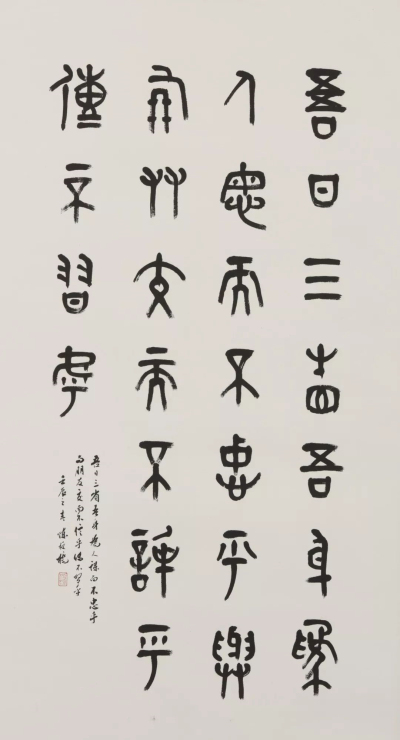 吾日三省吾身為
人謀而不忠乎與
朋友交而不信乎
傳不習乎
吾日三省吾身為人謀而不忠乎
與朋友交而不信乎傳不習乎
壬辰之春